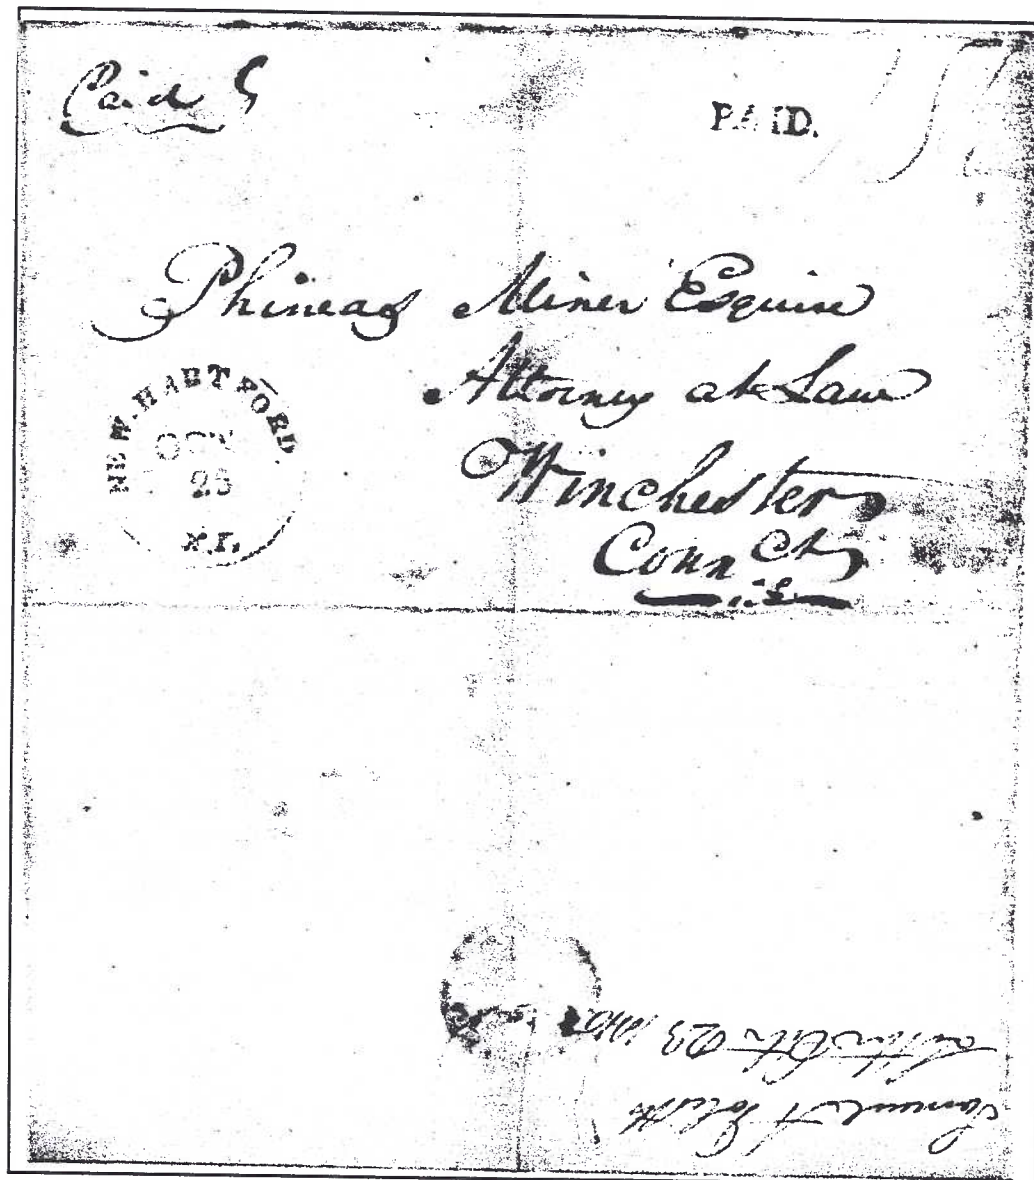 Paid
PAID.
Phineas Miner Esquire
Attorney at Law
Winchester
Conn Ct
NEW-HARTFORD.
OCT
25
N.Y.
Samuel
letter Oct 23